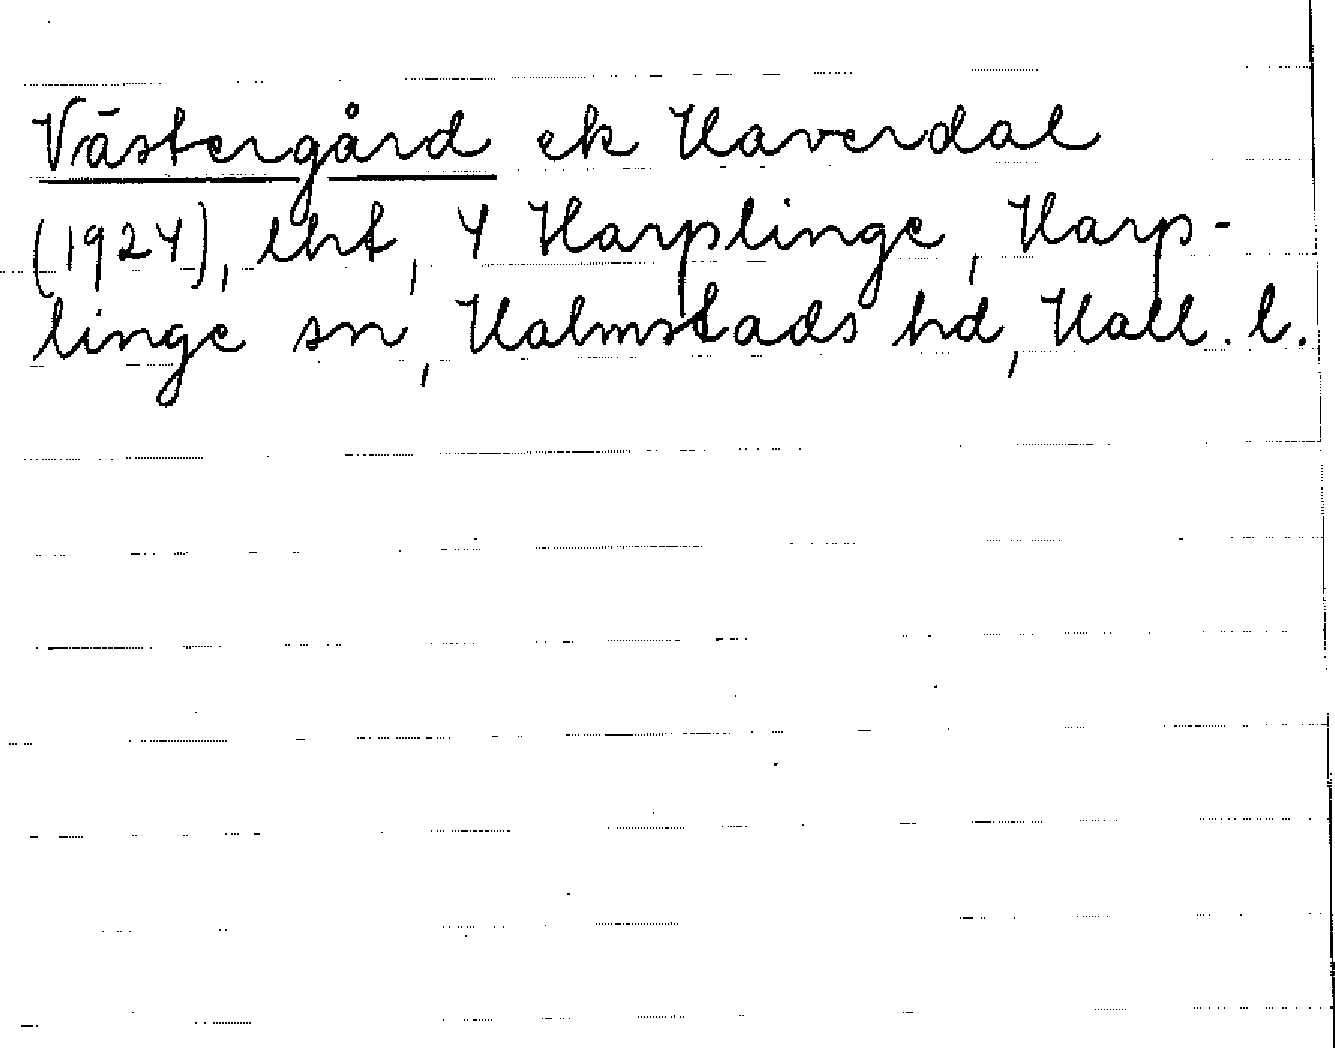 Västergård ek Haverdal
(1924), lht, 4 Harplinge, Harp-
linge sn, Halmstads hd, Hall. l.